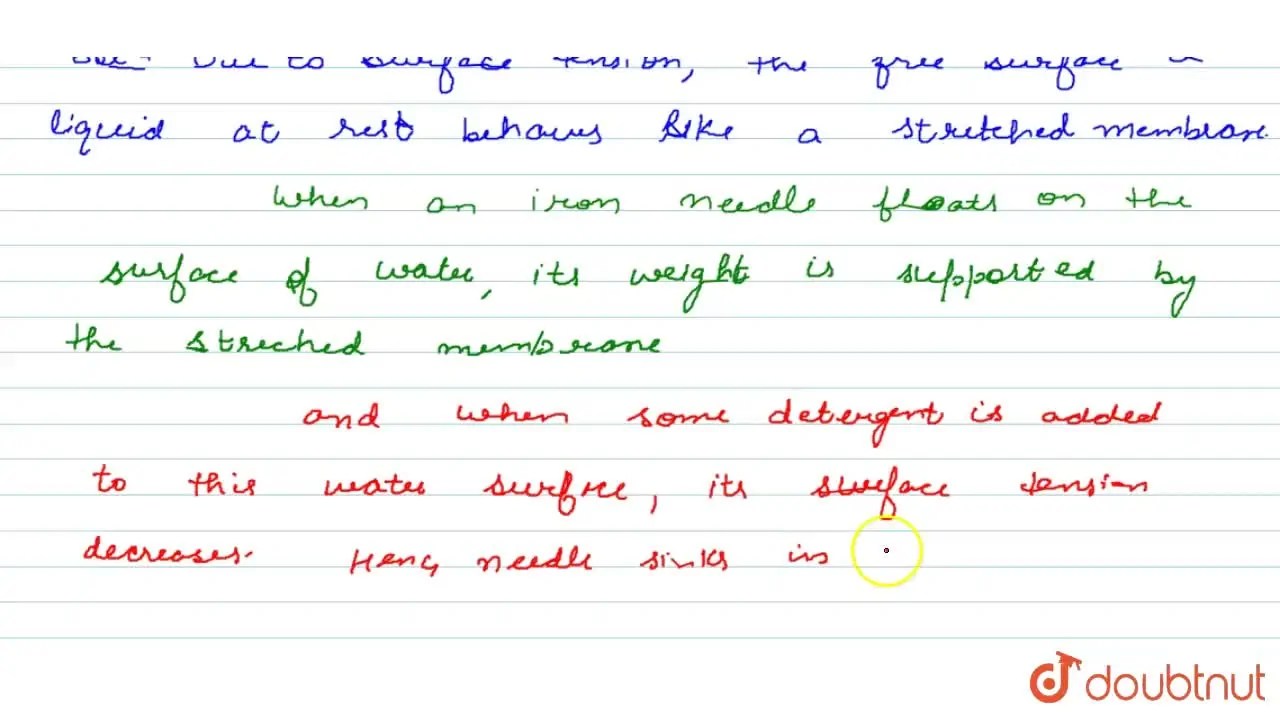 Due to surface tension, the free surface
liquid at rest behaves like a stretched membrane.
When an iron needle floats on the
surface of water, its weight is supported by
the streched membrane
and when some detergent is added
to this water surface, its surface tension
decreases. Henc, needle sinks in
doubtnut